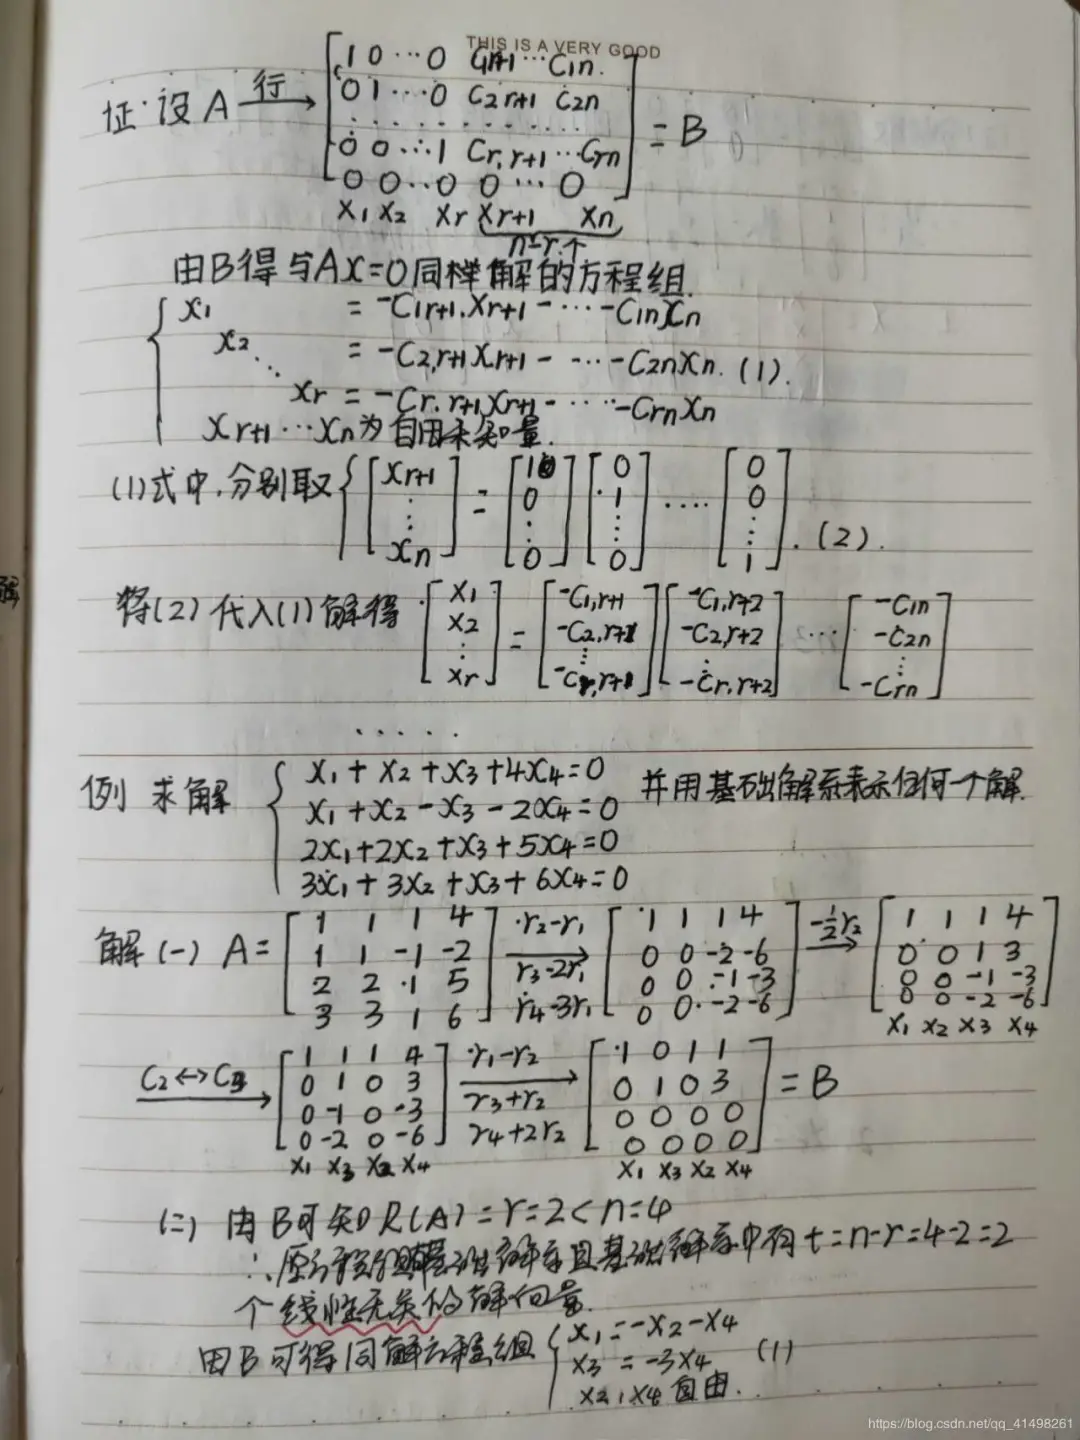 THIS IS A VERY GOOD
证:设A 行→ [1 0 ⋯ 0 C1r+1 ⋯ C1n
0 1 ⋯ 0 C2r+1 C2n
⋯⋯⋯⋯
0 0 ⋯ 1 Cr,r+1 ⋯ Crn
0 0 ⋯ 0 0 ⋯ 0] = B
x1 x2 xr xr+1 xn
n-r个
由B得与AX=0同样解的方程组.
x1 = -C1r+1.xr+1 - ⋯ -C1nxn
x2 = -C2,r+1xr+1 - ⋯ -C2nxn. (1).
⋱
xr = -Cr.r+1xr+1 - ⋯ -Crnxn
xr+1 ⋯ xn为自由未知量.
(1)式中,分别取 { [xr+1 ⋮ xn] = [1 0 ⋮ 0] [0 1 ⋮ 0] ⋯⋯ [0 0 ⋮ 1]. (2).
将(2)代入(1)解得 [x1 x2 ⋮ xr] = [-C1,r+1 -C2,r+1 ⋮ -Cr,r+1] [-C1,r+2 -C2,r+2 ⋮ -Cr,r+2] ⋯ [-C1n -C2n ⋮ -Crn]
⋯⋯
例 求解 { x1+x2+x3+4x4=0 并用基础解系表示任何一个解.
x1+x2-x3-2x4=0
2x1+2x2+x3+5x4=0
3x1+3x2+x3+6x4=0
解(一) A= [1 1 1 4
1 1 -1 -2
2 2 1 5
3 3 1 6] r2-r1 r3-2r1 r4-3r1 → [1 1 1 4
0 0 -2 -6
0 0 -1 -3
0 0 -2 -6] -1/2r2 → [1 1 1 4
0 0 1 3
0 0 -1 -3
0 0 -2 -6]
x1 x2 x3 x4
C2↔C3 → [1 1 1 4
0 1 0 3
0 -1 0 -3
0 -2 0 -6] r1-r2 r3+r2 r4+2r2 → [1 0 1 1
0 1 0 3
0 0 0 0
0 0 0 0] = B
x1 x3 x2 x4 x1 x3 x2 x4
(二) 由B可知R(A)=r=2<n=4
∴原方程组 基础解系且基础解系中有t=n-r=4-2=2
个线性无关的解向量.
由B可得同解方程组 { x1=-x2-x4
x3=-3x4 (1)
x2,x4自由.
https://blog.csdn.net/qq_41498261